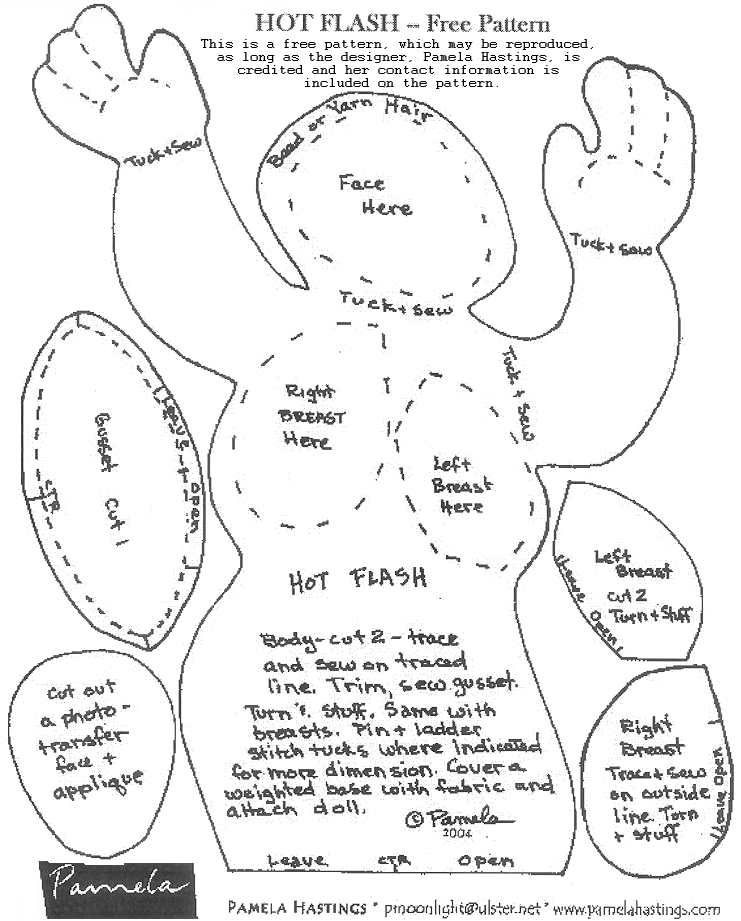 HOT FLASH – Free Pattern
This is a free pattern, which may be reproduced,
as long as the designer, Pamela Hastings, is
credited and her contact information is
included on the pattern.
Bead or Yarn Hair
Face
Here
Tuck + Sew
Tuck + Sew
Tuck + Sew
Tuck + Sew
Right
BREAST
Here
Left
Breast
Here
Gusset Cut 1
Leave open
CTR
HOT FLASH
Body-cut 2 - trace
and sew on traced
line. Trim, sew gusset.
Turn & stuff. Same with
breasts. Pin + ladder
stitch tucks where indicated
for more dimension. Cover a
weighted base with fabric and
attach doll.
©Pamela
2004
Leave CTR Open
Left
Breast
cut 2
Turn + Stuff
Leave Open
Right
Breast
Trace + Sew
on outside
line. Turn
+ stuff
Leave Open
Cut out
a photo-
transfer
face +
applique
Pamela
PAMELA HASTINGS * pmoonlight@ulster.net * www.pamelahastings.com